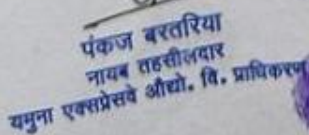 पंकज बरतरिया
नायब तहसीलदार
यमुना एक्सप्रेसवे औद्यो. वि. प्राधिकरण